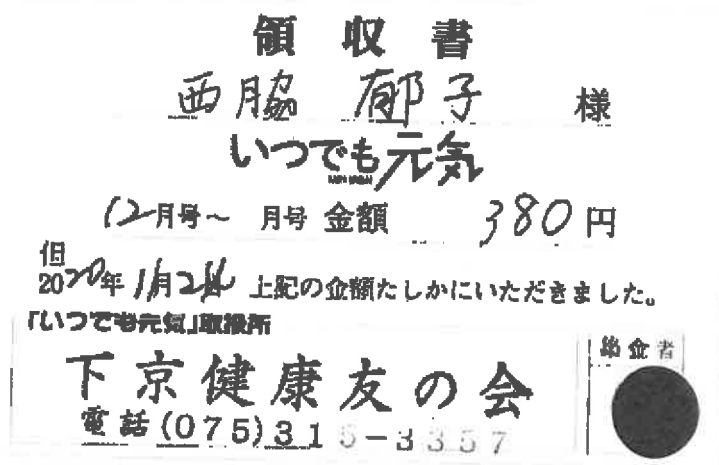 領収書
西脇 郁子 様
いつでも元気
12月号～ 月号 金額 380円
但
2020年11月24日 上記の金額たしかにいただきました。
「いつでも元気」取扱所
下京健康友の会
電話(075)315-3357
集金者